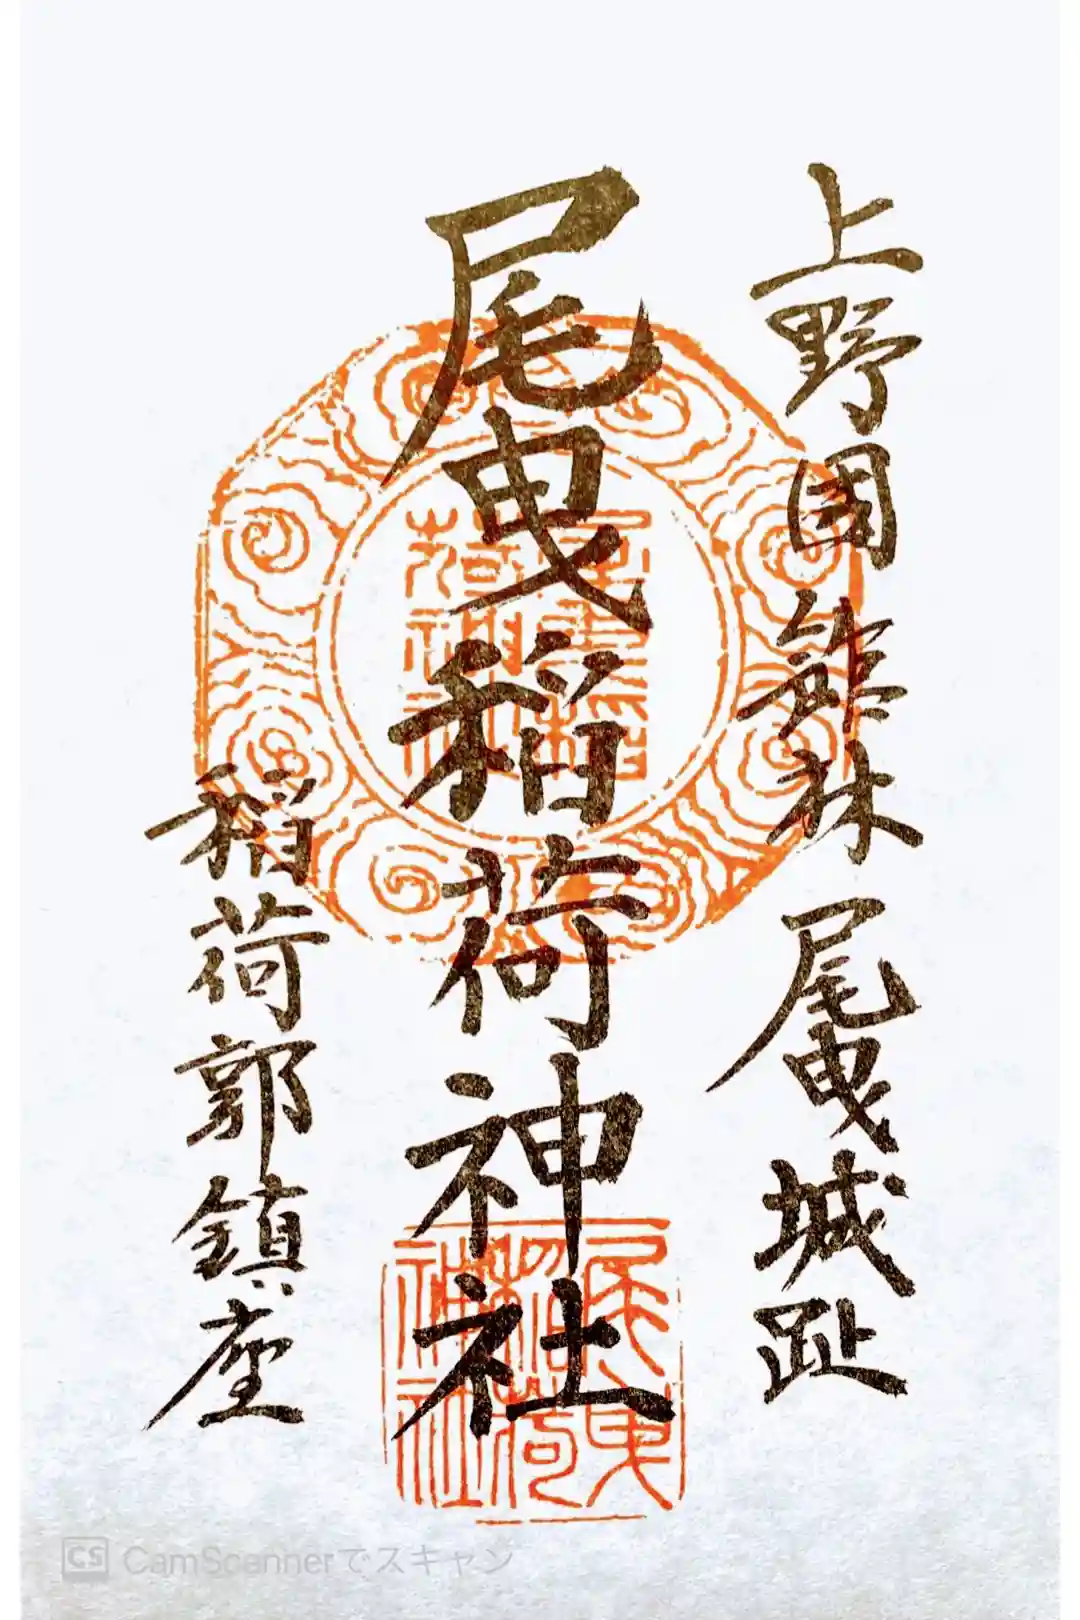 上野国 舘林 尾曳城趾
尾曳稲荷神社
稲荷郭鎮座
尾曳
稲荷
神社
CS CamScannerでスキャン